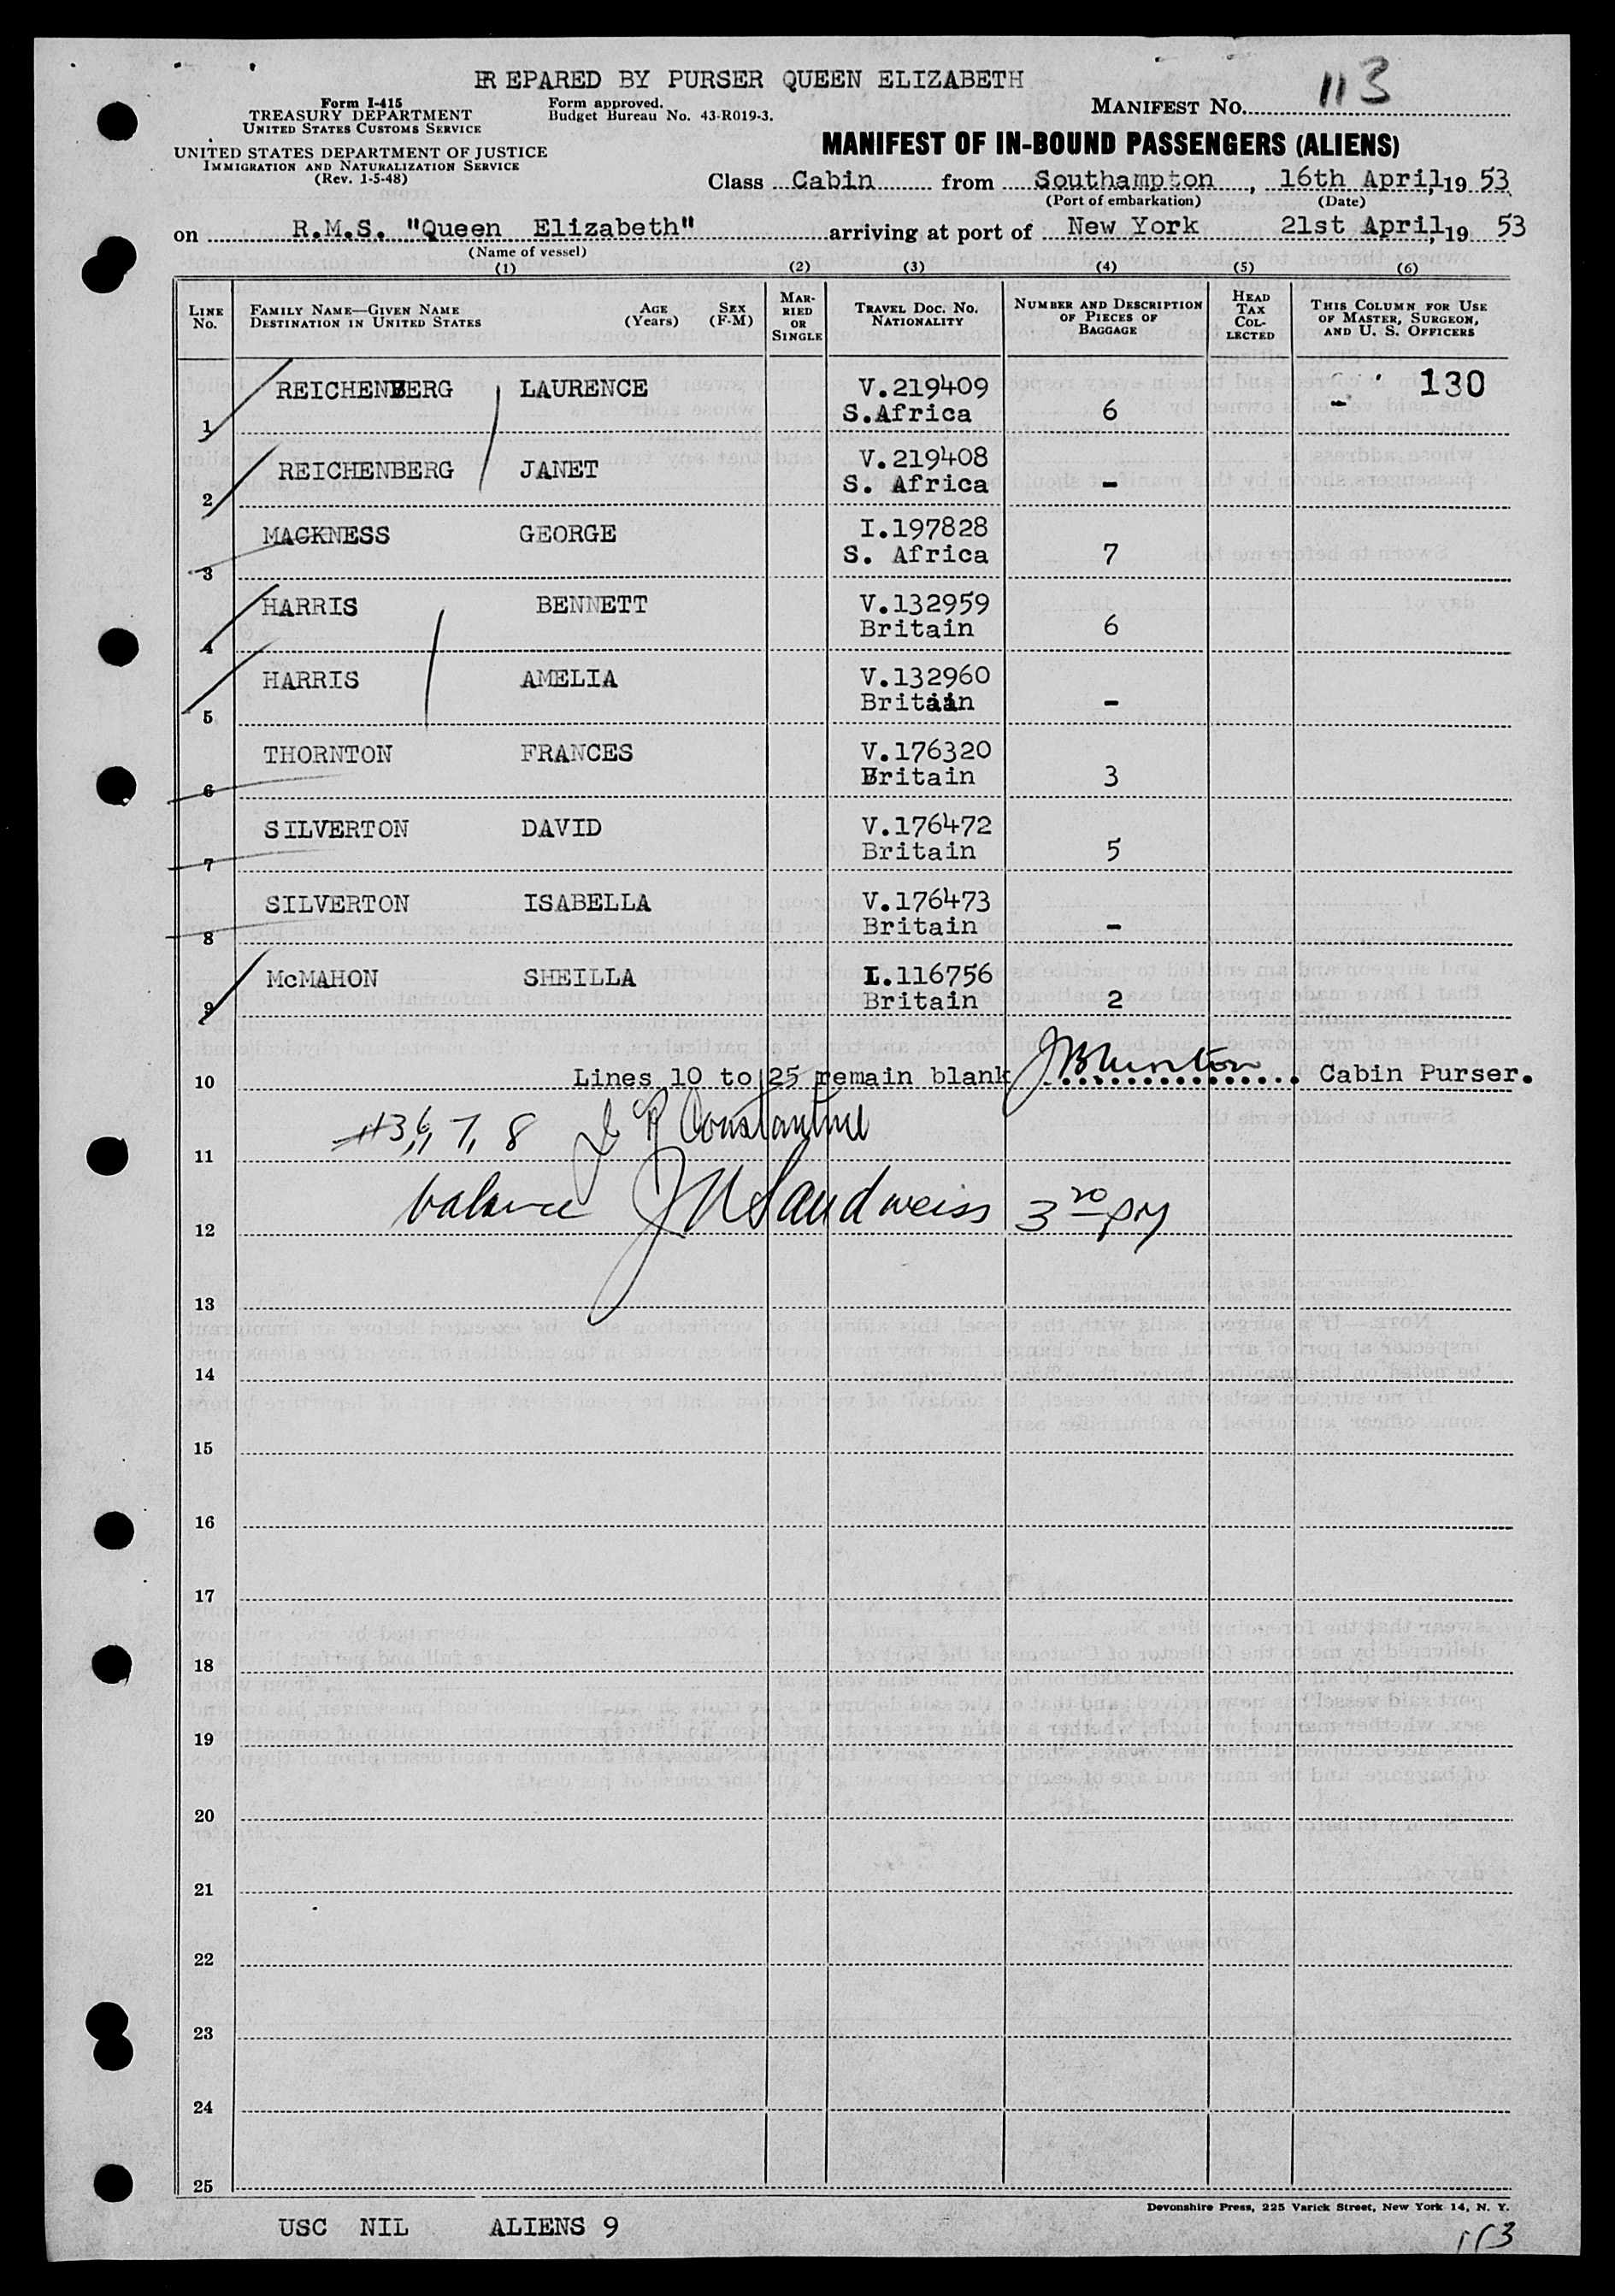 PREPARED BY PURSER QUEEN ELIZABETH
Form I-415
TREASURY DEPARTMENT
UNITED STATES CUSTOMS SERVICE
Form approved.
Budget Bureau No. 43-R019-3.
MANIFEST NO. 113
UNITED STATES DEPARTMENT OF JUSTICE
IMMIGRATION AND NATURALIZATION SERVICE
(Rev. 1-5-48)
MANIFEST OF IN-BOUND PASSENGERS (ALIENS)
Class Cabin from Southampton, 16th April, 19 53
(Port of embarkation) (Date)
on R.M.S. "Queen Elizabeth" arriving at port of New York 21st April, 19 53
(Name of vessel)
(1) (2) (3) (4) (5) (6)
LINE No. FAMILY NAME—GIVEN NAME DESTINATION IN UNITED STATES AGE (Years) SEX (F-M) MARRIED OR SINGLE TRAVEL DOC. NO. NATIONALITY NUMBER AND DESCRIPTION OF PIECES OF BAGGAGE HEAD TAX COLLECTED THIS COLUMN FOR USE OF MASTER, SURGEON, AND U. S. OFFICERS
REICHENBERG LAURENCE V.219409 130
1 S.Africa 6 -
REICHENBERG JANET V.219408
2 S. Africa -
MACKNESS GEORGE I.197828
3 S. Africa 7
HARRIS BENNETT V.132959
4 Britain 6
HARRIS AMELIA V.132960
5 Britain -
THORNTON FRANCES V.176320
6 Britain 3
SILVERTON DAVID V.176472
7 Britain 5
SILVERTON ISABELLA V.176473
8 Britain -
McMAHON SHEILLA I.116756
9 Britain 2
10 Lines 10 to 25 remain blank Cabin Purser.
3, 6, 7, 8 Constantine
11
balance J N Sandweiss 3 20 PM
12
13
14
15
16
17
18
19
20
21
22
23
24
25
Devonshire Press, 225 Varick Street, New York 14, N. Y.
USC NIL ALIENS 9
113